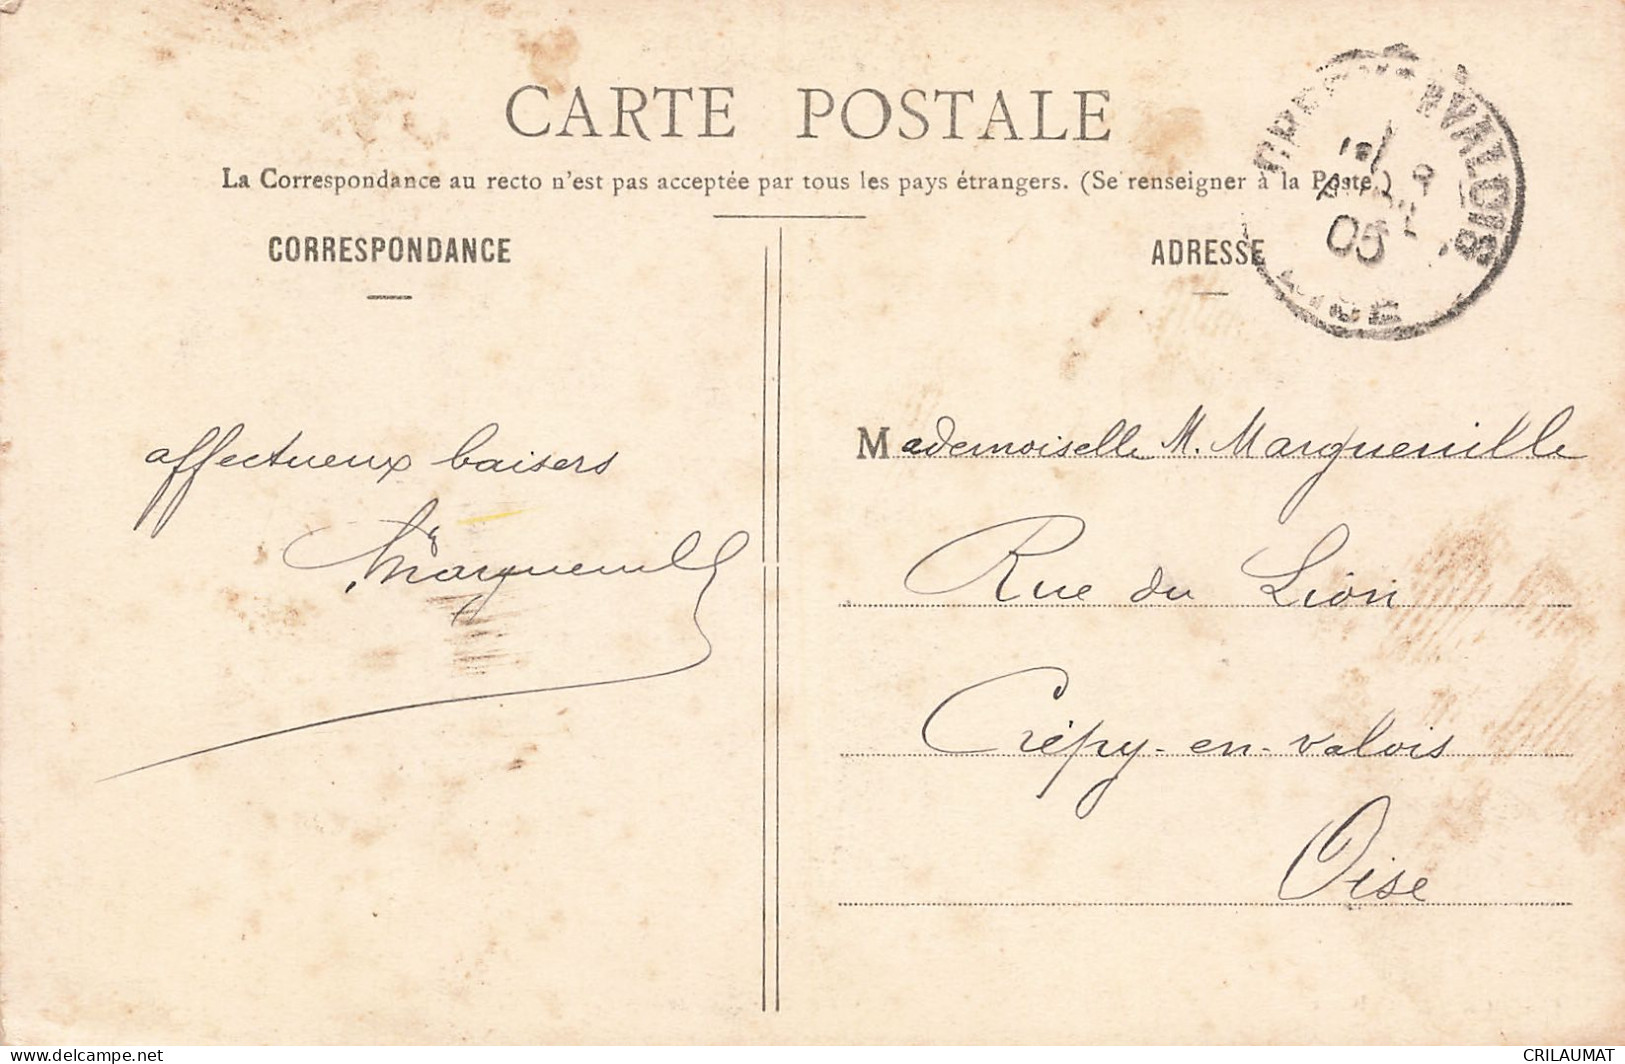 CARTE POSTALE
La Correspondance au recto n'est pas acceptée par tous les pays étrangers. (Se renseigner à la Poste)
CORRESPONDANCE
ADRESSE
VALOIS
05
OISE
affectueux baisers
Mademoiselle M. Marguenille
Rue du Lion
Crépy-en-valois
Oise
www.delcampe.net
CRILAUMAT